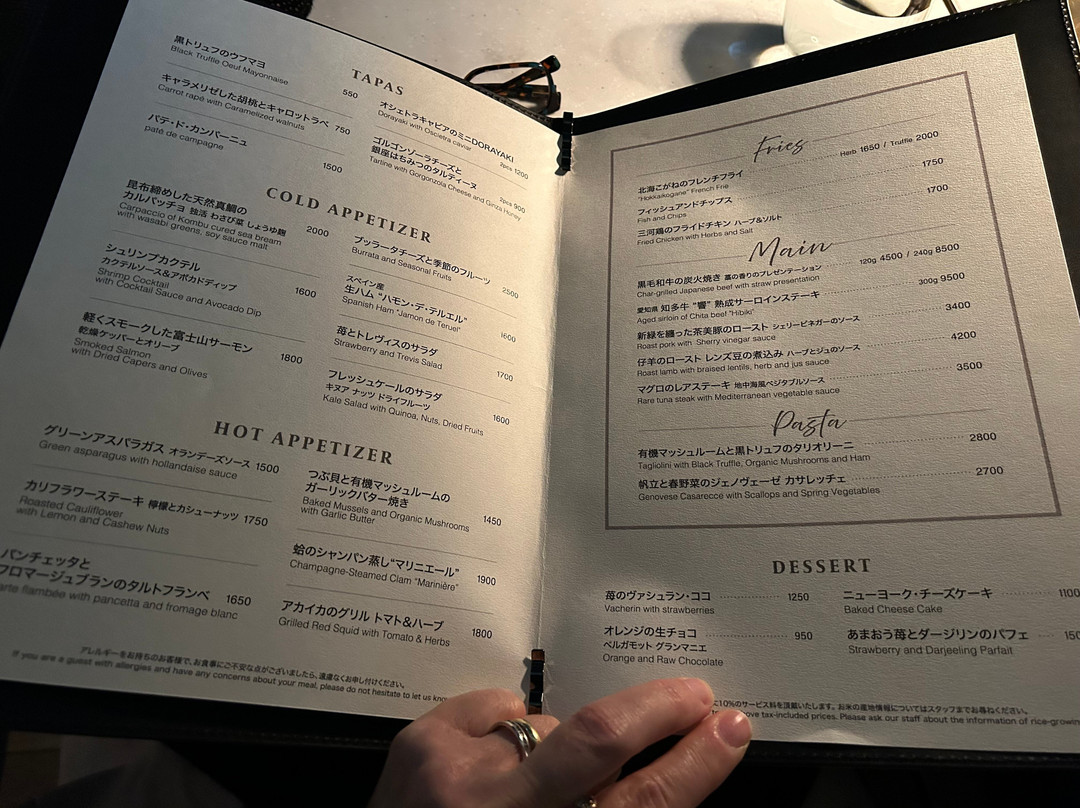 TAPAS
黒トリュフのウフマヨ 550
Black Truffle Oeuf Mayonnaise
キャラメリゼした胡桃とキャロットラペ 750
Carrot rapé with Caramelized walnuts
パテ・ド・カンパーニュ 1500
paté de campagne
オシェトラキャビアのミニDORAYAKI
Dorayaki with Oscietra caviar 2pcs 1200
ゴルゴンゾーラチーズと
銀座はちみつのタルティーヌ
Tartine with Gorgonzola Cheese and Ginza Honey 2pcs 900
COLD APPETIZER
昆布締めした天然真鯛の
カルパッチョ 独活 わさび菜 しょうゆ麹 2000
Carpaccio of Kombu cured sea bream
with wasabi greens, soy sauce malt
シュリンプカクテル
カクテルソース&アボカドディップ 1600
Shrimp Cocktail
with Cocktail Sauce and Avocado Dip
軽くスモークした富士山サーモン
乾燥ケッパーとオリーブ 1800
Smoked Salmon
with Dried Capers and Olives
ブッラータチーズと季節のフルーツ 2500
Burrata and Seasonal Fruits
スペイン産
生ハム “ハモン・デ・テルエル” 1600
Spanish Ham "Jamon de Teruel"
苺とトレヴィスのサラダ 1700
Strawberry and Trevis Salad
フレッシュケールのサラダ
キヌア ナッツ ドライフルーツ 1600
Kale Salad with Quinoa, Nuts, Dried Fruits
HOT APPETIZER
グリーンアスパラガス オランデーズソース 1500
Green asparagus with hollandaise sauce
カリフラワーステーキ 檸檬とカシューナッツ 1750
Roasted Cauliflower
with Lemon and Cashew Nuts
パンチェッタと
フロマージュブランのタルトフランベ 1650
arte flambée with pancetta and fromage blanc
つぶ貝と有機マッシュルームの
ガーリックバター焼き 1450
Baked Mussels and Organic Mushrooms
with Garlic Butter
蛤のシャンパン蒸し“マリニエール” 1900
Champagne-Steamed Clam "Marinière"
アカイカのグリル トマト&ハーブ 1800
Grilled Red Squid with Tomato & Herbs
アレルギーをお持ちのお客様で、お食事にご不安な点がございましたら、遠慮なくお申し付けください。
If you are a guest with allergies and have any concerns about your meal, please do not hesitate to let us know
Fries
北海こがねのフレンチフライ Herb 1650 / Truffle 2000
"Hokkaikogane" French Frie
フィッシュアンドチップス 1750
Fish and Chips
三河鶏のフライドチキン ハーブ&ソルト 1700
Fried Chicken with Herbs and Salt
Main
黒毛和牛の炭火焼き 藁の香りのプレゼンテーション 120g 4500 / 240g 8500
Char-grilled Japanese beef with straw presentation
愛知県 知多牛 “響” 熟成サーロインステーキ 300g 9500
Aged sirloin of Chita beef "Hibiki"
新緑を纏った茶美豚のロースト シェリービネガーのソース 3400
Roast pork with Sherry vinegar sauce
仔羊のロースト レンズ豆の煮込み ハーブとジュのソース 4200
Roast lamb with braised lentils, herb and jus sauce
マグロのレアステーキ 地中海風ベジタブルソース 3500
Rare tuna steak with Mediterranean vegetable sauce
Pasta
有機マッシュルームと黒トリュフのタリオリーニ 2800
Tagliolini with Black Truffle, Organic Mushrooms and Ham
帆立と春野菜のジェノヴェーゼ カサレッチェ 2700
Genovese Casarecce with Scallops and Spring Vegetables
DESSERT
苺のヴァシュラン・ココ 1250
Vacherin with strawberries
オレンジの生チョコ 950
ベルガモット グランマニエ
Orange and Raw Chocolate
ニューヨーク・チーズケーキ 1100
Baked Cheese Cake
あまおう苺とダージリンのパフェ 150
Strawberry and Darjeeling Parfait
に10%のサービス料を頂戴いたします。お米の産地情報についてはスタッフまでお尋ねください。
ove tax-included prices. Please ask our staff about the information of rice-growing